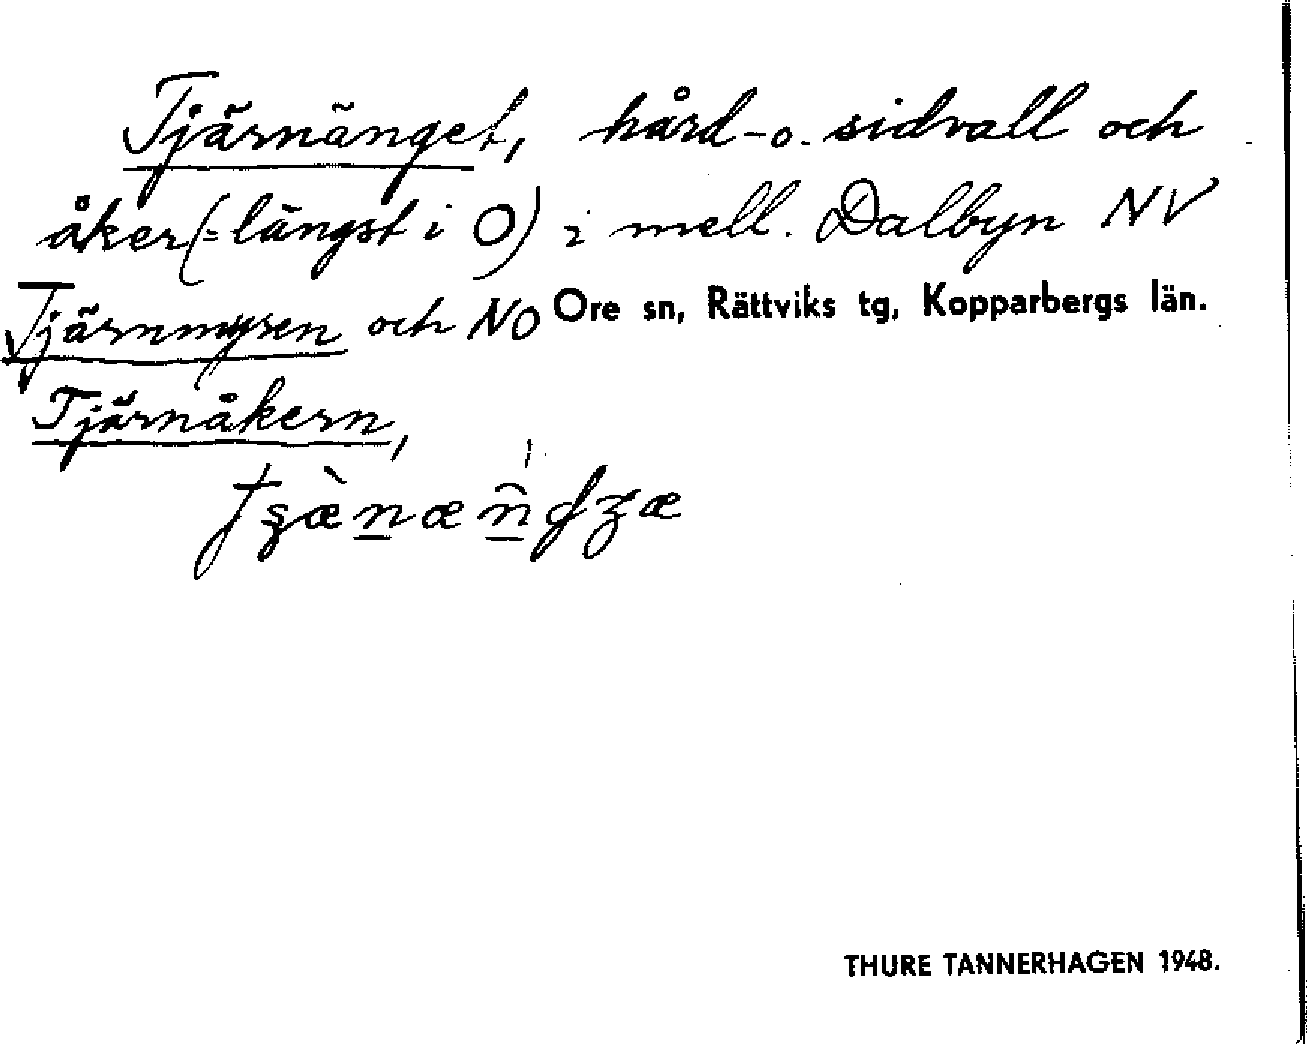 Tjärnänget, hård- o. sidvall och
åker (= längst i O) i mell. Dalbyn NV
Tjärnmyren och NO Ore sn, Rättviks tg, Kopparbergs län.
Tjärnåkern,
THURE TANNERHAGEN 1948.